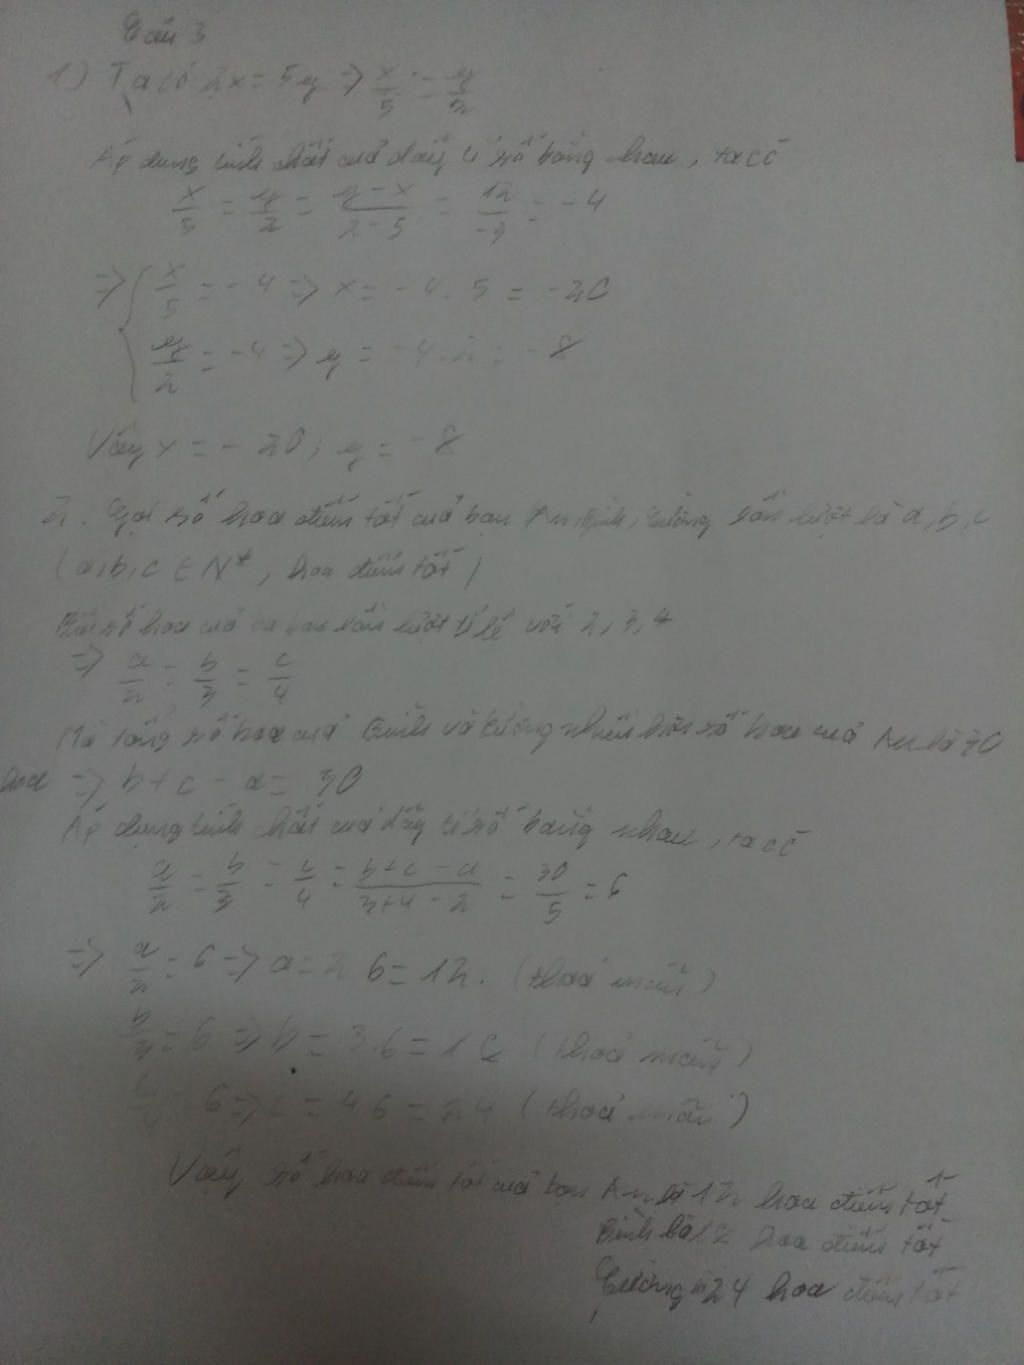 Câu 3
1) Ta có 2x = 5y => x/5 = y/2
Áp dụng tính chất của dãy tỉ số bằng nhau, ta có
x/5 = y/2 = (y - x)/(2 - 5) = 12/-3 = -4
=> { x/5 = -4 => x = -4 . 5 = -20
y/2 = -4 => y = -4 . 2 = -8
Vậy x = -20 ; y = -8
2. Gọi số hoa điểm tốt của bạn An, Bình, Cường lần lượt là a, b, c
(a, b, c ∈ N*, hoa điểm tốt)
số hoa của ba bạn lần lượt tỉ lệ với 2, 3, 4
=> a/2 = b/3 = c/4
Mà tổng số hoa của Bình và Cường nhiều hơn số hoa của An là 30
hoa => b + c - a = 30
Áp dụng tính chất của dãy tỉ số bằng nhau, ta có
a/2 = b/3 = c/4 = (b + c - a)/(3 + 4 - 2) = 30/5 = 6
=> a/2 = 6 => a = 2 . 6 = 12. (thoả mãn)
= 6 => b = 3.6 = 18 (thoả mãn)
= 6 => c = 4.6 = 24 (thoả mãn)
Vậy số hoa điểm tốt của bạn An là 12 hoa điểm tốt
Bình là 18 hoa điểm tốt
Cường là 24 hoa điểm tốt